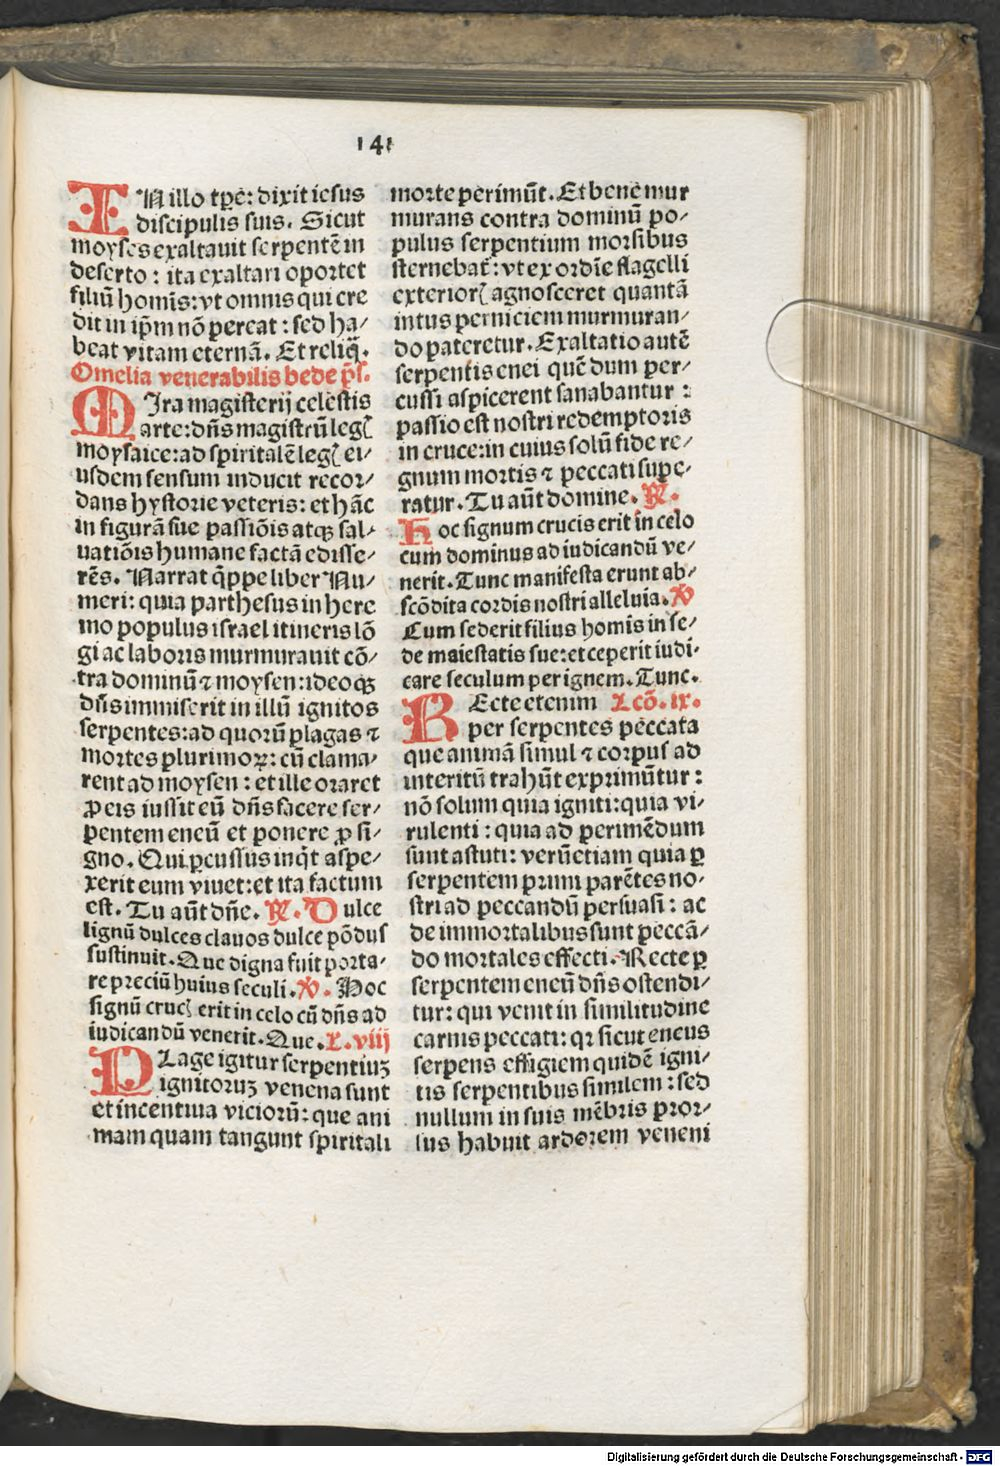 141
IN illo tp̄e: dixit iesus
discipulis suis. Sicut
moyses exaltauit serpentē in
deserto: ita exaltari oportet
filiū homīs: vt omnis qui cre
dit in ip̄m nō pereat: sed ha/
beat vitam eternā. Et reliq̄.
Omelia venerabilis bede p̄s.
MIra magisterij celestis
arte: dn̄s magistrū legꝭ
moysaice: ad spiritalē legꝭ ei/
usdem sensum inducit recor/
dans hystorie veteris: et hāc
in figurā sue passiōis atqꝫ sal/
uatiōis humane factā edisse/
rēs. Narrat q̄ppe liber Nu/
meri: quia parthesus in here
mo populus israel itineris lō
gi ac laboris murmurauit cō/
tra dominū ⁊ moysen: ideoqꝫ
dn̄s immiserit in illū ignitos
serpentes: ad quorū plagas ⁊
mortes plurimoꝝ: cū clama/
rent ad moysen: et ille oraret
ꝓ eis iussit eū dn̄s facere ser/
pentem eneū et ponere ꝓ si/
gno. Qui ꝑcussus inq̄t aspe/
xerit eum viuet: et ita factum
est. Tu aūt dn̄e. ℟. Dulce
lignū dulces clauos dulce pōdus
sustinuit. Que digna fuit porta/
re preciū huius seculi. ℣. Hoc
signū crucꝭ erit in celo cū dn̄s ad
iudicandū venerit. Que. L. viij
PLage igitur serpentiuꝫ
ignitoruꝫ venena sunt
et incentiua viciorū: que ani
mam quam tangunt spiritali
morte perimūt. Et bene mur
murans contra dominū po/
pulus serpentium morsibus
sternebat̄: vt ex ordīe flagelli
exteriorꝭ agnosceret quantā
intus perniciem murmuran/
do pateretur. Exaltatio autē
serpentis enei quē dum per/
cussi aspicerent sanabantur:
passio est nostri redemptoris
in cruce: in cuius solū fide re/
gnum mortis ⁊ peccati supe/
ratur. Tu aūt domine. ℟.
Hoc signum crucis erit in celo
cum dominus ad iudicandū ve/
nerit. Tunc manifesta erunt ab/
scōdita cordis nostri alleluia. ℣
Cum sederit filius homis in se/
de maiestatis sue: et ceperit iudi/
care seculum per ignem. Tunc.
REcte etenim Lcō. ix.
per serpentes peccata
que animā simul ⁊ corpus ad
interitū trahūt exprimūtur:
nō solum quia igniti: quia vi/
rulenti: quia ad perimēdum
sunt astuti: verūetiam quia ꝑ
serpentem primi parētes no/
stri ad peccandū persuasi: ac
de immortalibus sunt peccā/
do mortales effecti. Recte ꝑ
serpentem eneū dn̄s ostendi/
tur: qui venit in similitudine
carnis peccati: qꝛ sicut eneus
serpens effigiem quidē igni/
tis serpentibus similem: sed
nullum in suis mēbris pror/
sus habuit ardorem veneni
Digitalisierung gefördert durch die Deutsche Forschungsgemeinschaft - DFG